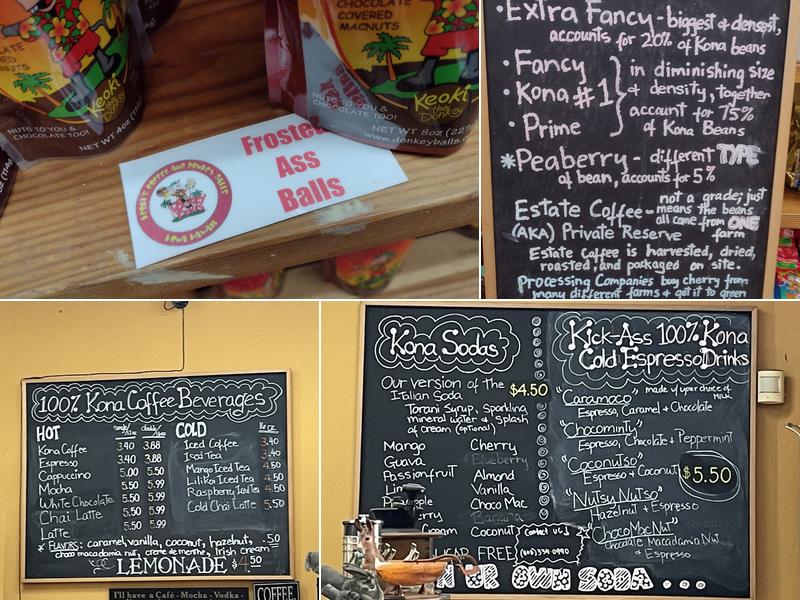 CHOCOLATE
COVERED
MACNUTS
Keoki
the
Donkey
NUTS TO YOU &
CHOCOLATE TOO!
NET WT 4oz
COVERED
MACNUTS
Keoki
the
Donkey
NUTS TO YOU &
CHOCOLATE TOO!
NET WT 8oz (227
www.donkeyballs.c
Frosted
Ass
Balls
KONA HAWAII
• Extra Fancy - biggest & densest,
accounts for 20% of Kona beans
• Fancy
• Kona #1
• Prime
in diminishing size
& density, together
account for 75%
of Kona Beans
* Peaberry - different TYPE
of bean, accounts for 5%
Estate Coffee - not a grade; just
means the beans
all came from ONE
farm
(AKA) Private Reserve
Estate Coffee is harvested, dried,
roasted, and packaged on site.
Processing Companies buy cherry from
many different farms & get it to green
100% Kona Coffee Beverages
HOT
Kona Coffee 3.40 3.88
Espresso 3.40 3.88
Cappuccino 5.00 5.50
Mocha 5.50 5.99
White Chocolate 5.50 5.99
Chai Latte 5.50 5.99
Latte 5.50 5.99
COLD
Iced Coffee 3.40
Iced Tea 3.40
Mango Iced Tea 4.50
Lilikoi Iced Tea 4.50
Raspberry Iced Tea 4.50
Cold Chai Latte 5.50
* FLAVORS: caramel, vanilla, coconut, hazelnut, .50
choco macadamia nut, creme de menthe, Irish cream
LEMONADE $4.50
I'll have a Café - Mocha - Vodka -
COFFEE
Kona Sodas
Our version of the
Italian Soda
$4.50
Torani Syrup, Sparkling
mineral water & Splash
of cream (optional)
Mango
Guava
Passionfruit
Cream
Cherry
Blueberry
Almond
Vanilla
Choco Mac
Banana
Coconut
FREE
Contact us!
OR OWN SODA ...
Kick-Ass 100% Kona
Cold Espresso Drinks
made w/ your choice of
MILK
"Caramoco"
Espresso, Caramel & Chocolate
"Chocominty"
Espresso, Chocolate & Peppermint
"Coconutso"
Espresso & Coconut
$5.50
"Nutsy Nutso"
Hazelnut & Espresso
"ChocoMacNut"
Chocolate Macadamia Nut
& Espresso